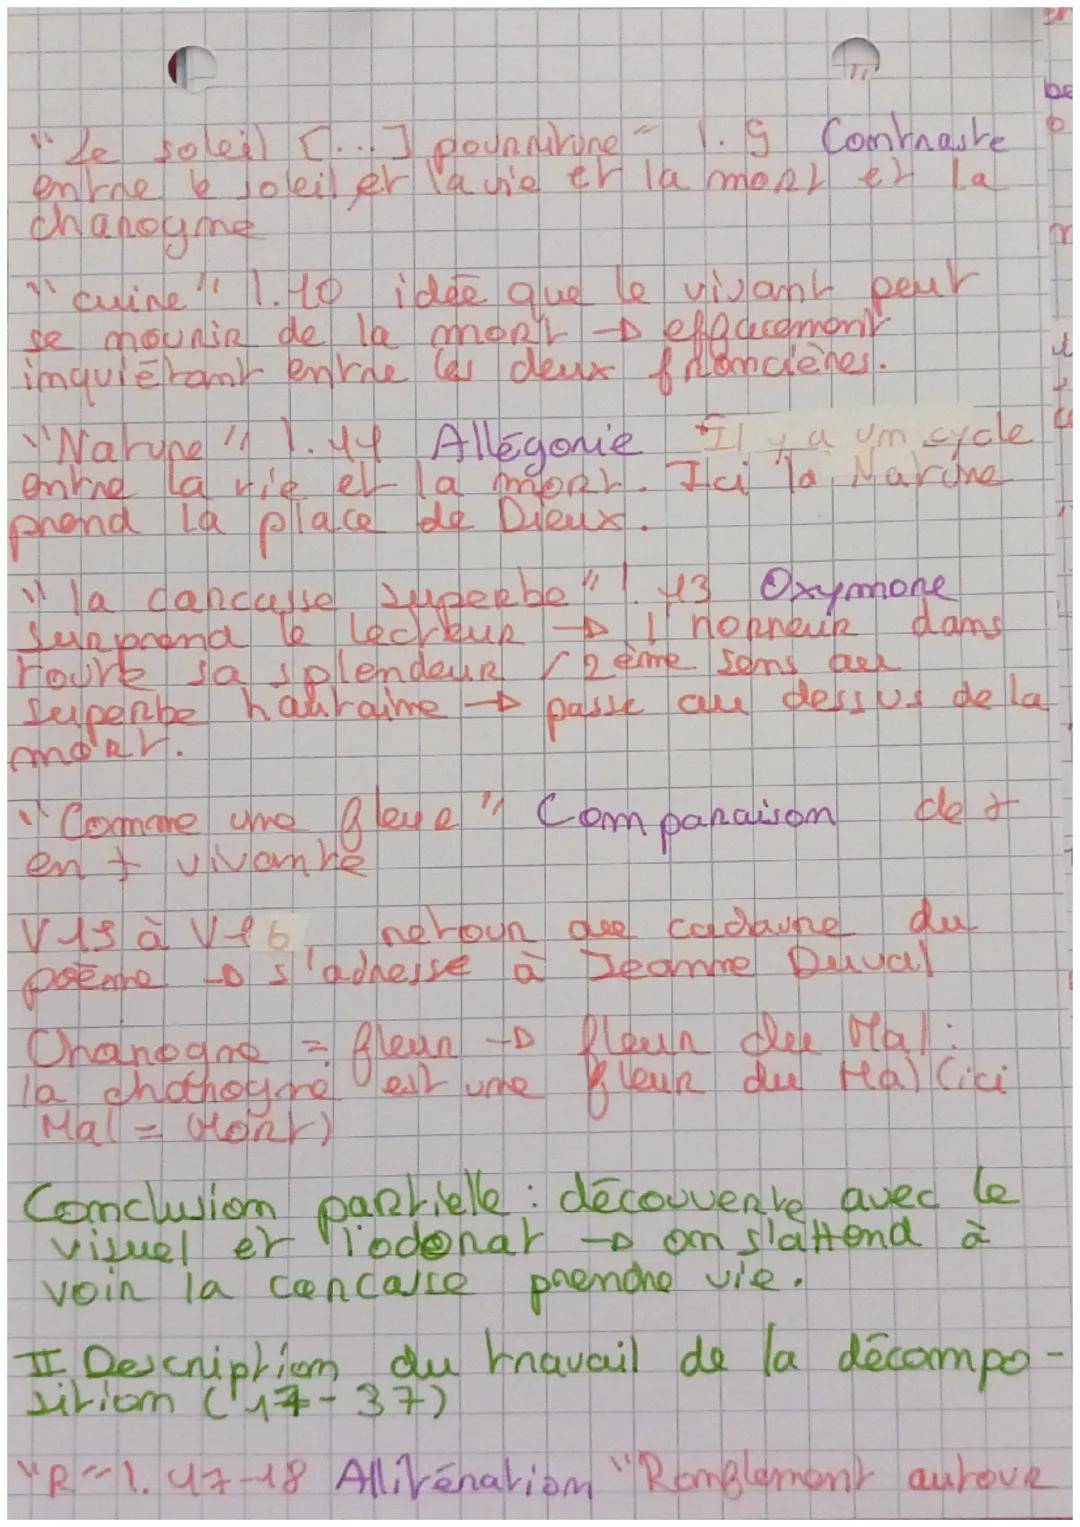 "Le soleil [...] pourriture" l.9 Contraste
entre le soleil et la vie et la mort et la
charogne
"cuire" l.10 idée que le vivant peut
se nourir de la mort → effacement
inquiétant entre les deux frontières.
"Nature" l.11 Allégorie Il y a un cycle
entre la vie et la mort. Ici la Nature
prend la place de Dieux.
"la carcasse superbe" l.13 Oxymore
surprend le lecteur → l'horreur dans
toute sa splendeur / 2ème sens au
superbe hautaine → passe au dessus de la
mort.
"Comme une fleur" Comparaison de +
en + vivante
V15 à V16 retour au cadavre du
poème → s'adresse à Jeanne Duval
Charogne = fleur → fleur du Mal :
la charogne est une fleur du Mal (ici
Mal = Mort)
Conclusion partielle : découverte avec le
visuel et l'odorat → on s'attend à
voir la carcasse prendre vie.
II Description du travail de la décompo-
sition (17-37)
"R" l.17-18 Allitération "Ronflement autour